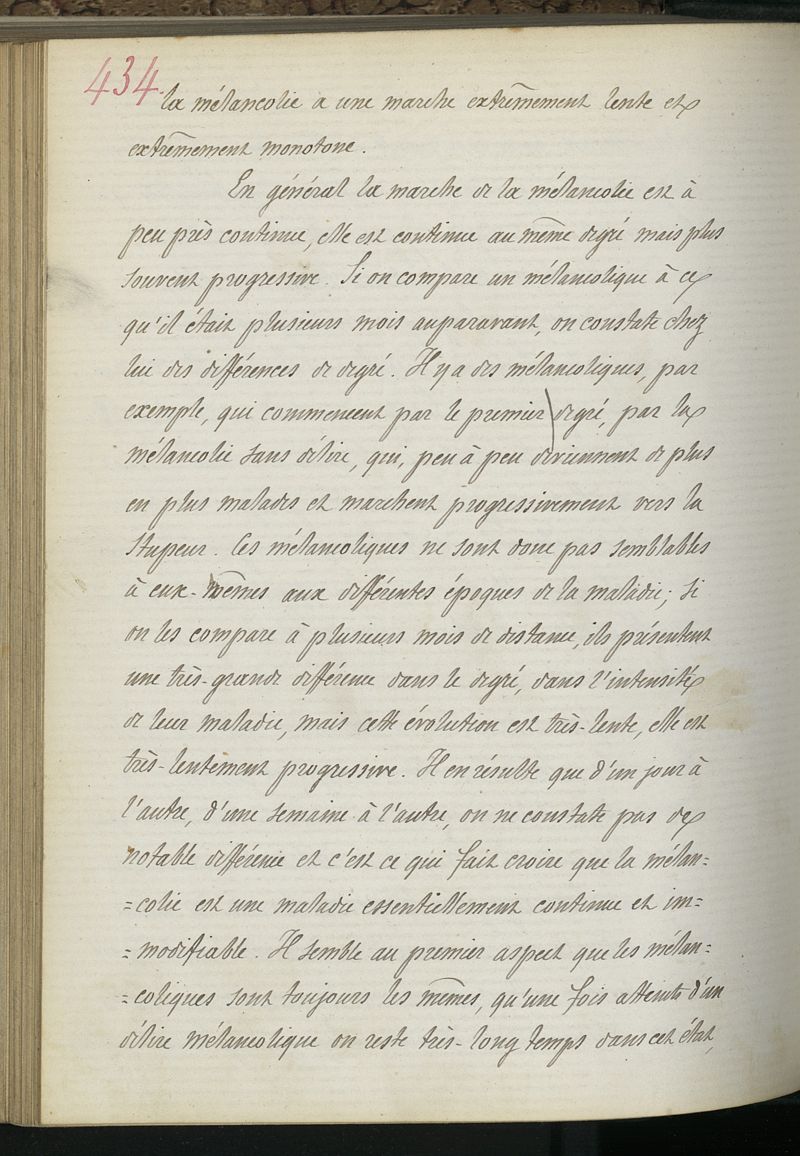 434
la mélancolie a une marche extrêmement lente et
extrêmement monotone.
En général la marche de la mélancolie est à
peu près continue, elle est continue au même degré mais plus
souvent progressive. Si on compare un mélancolique à ce
qu'il était plusieurs mois auparavant, on constate chez
lui des différences de degré. Il y a des mélancoliques, par
exemple, qui commencent par le premier degré, par la
mélancolie sans délire, qui, peu à peu deviennent de plus
en plus malades et marchent progressivement vers la
stupeur. Ces mélancoliques ne sont donc pas semblables
à eux-mêmes aux différentes époques de la maladie; si
on les compare à plusieurs mois de distance, ils présentent
une très-grande différence dans le degré, dans l'intensité
de leur maladie, mais cette évolution est très-lente, elle est
très-lentement progressive. Il en résulte que d'un jour à
l'autre, d'une semaine à l'autre, on ne constate pas de
notable différence et c'est ce qui fait croire que la mélan=
=colie est une maladie essentiellement continue et im=
=modifiable. Il semble au premier aspect que les mélan=
=coliques sont toujours les mêmes, qu'une fois atteints d'un
délire mélancolique on reste très-long temps dans cet état,